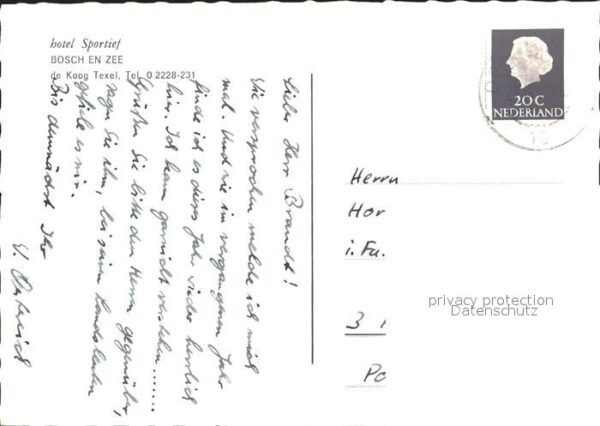 hotel Sportief
BOSCH EN ZEE
de Koog Texel, Tel. 0 2228-231
Lieber Herr Brandt!
Wie versprochen melde ich mich
mal. Und wie im vergangenen Jahr
finde ich es dieses Jahr wieder herrlich
hier. Ich kann garnicht verstehen.......
Grüßen Sie bitte den Herrn gegenüber,
sagen Sie ihm, bei seinen Landsleuten
gefiele es mir.
Bis demnächst Ihr
20 C
NEDERLAND
Herrn
Hor
i. Fa.
privacy protection
Datenschutz
3 1
Po